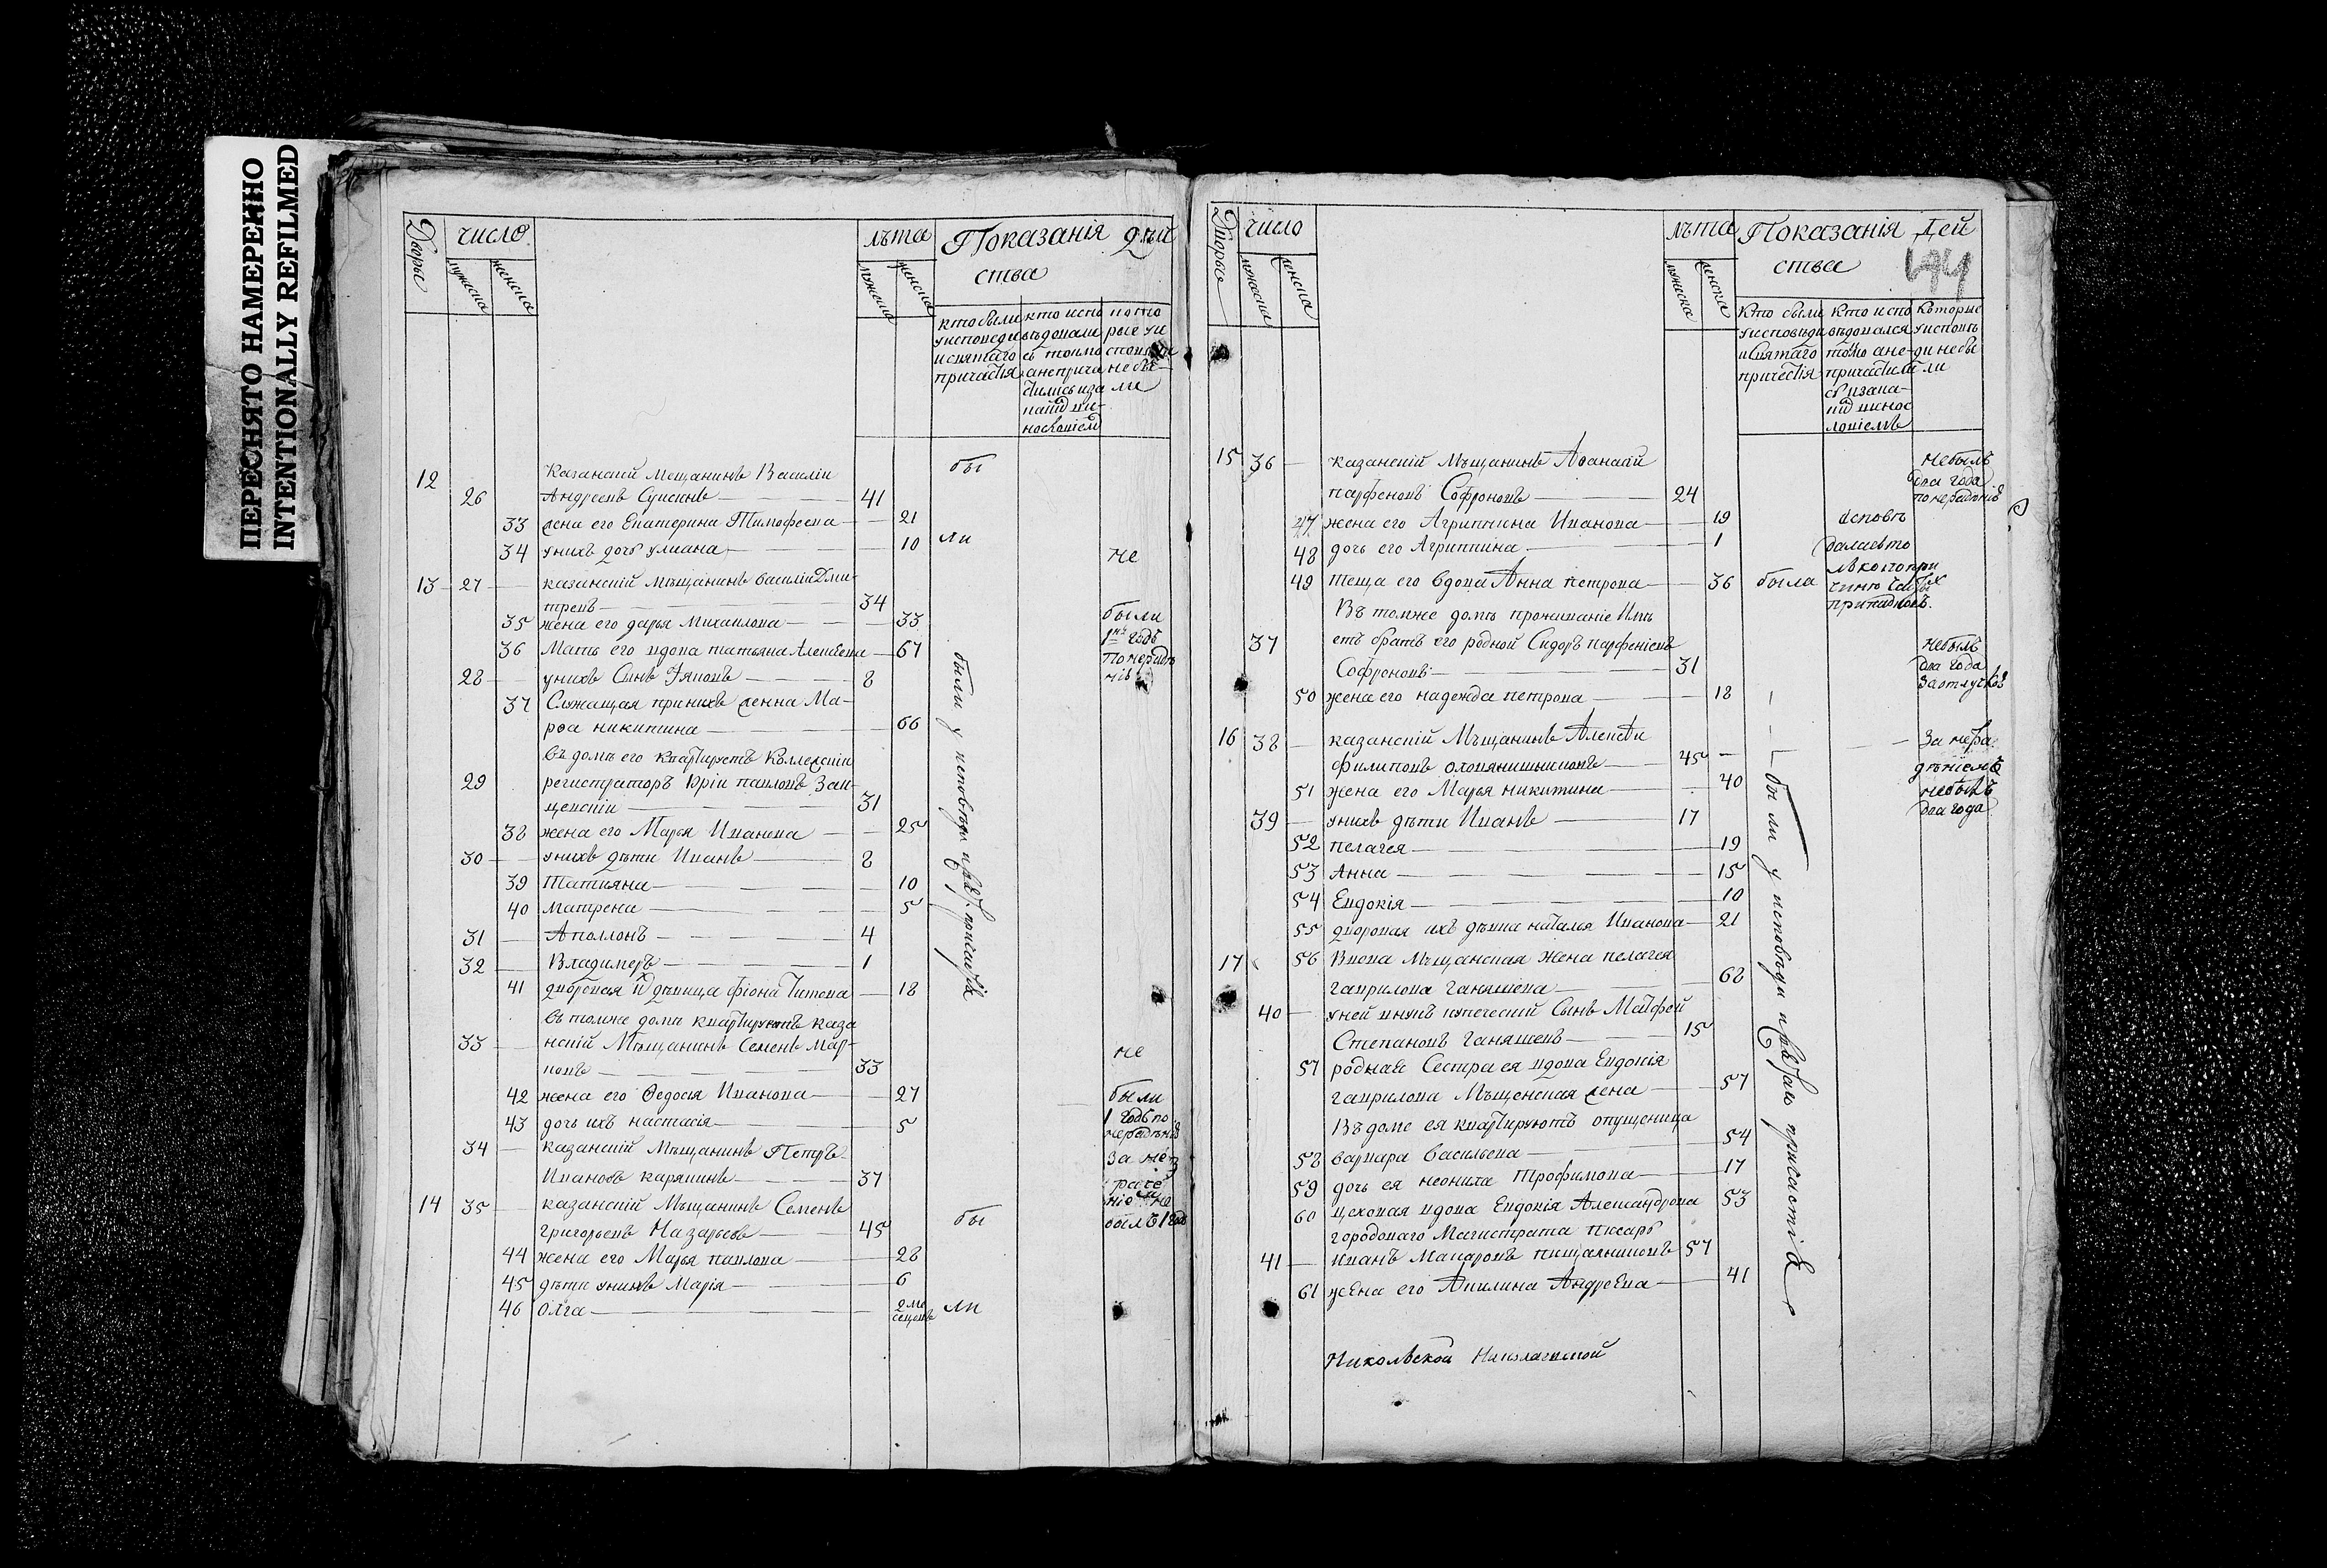 ПЕРЕСНЯТО НАМЕРЕННО
INTENTIONALLY REFILMED
Дворы число лѣта Показанія дѣй
ства
мужеска женска мужеска женска
кто были
у исповеди
и святаго
причастія
не бы
ли
12 Казанскій мещанинъ Василіи
26 Андреевъ 41
33 жена его Екатерина Тимофеева 21
34 у нихъ дочь улиана 10
бы
ли
13 27 казанскій мѣщанинъ василіи Дми-
треевъ 34
35 жена его дарья Михаилова 33
36 Мать его вдова татьяна Алексеева 67
28 у нихъ Сынъ 8
37 Служащая при нихъ женка Ма-
рѳа никитина 66
не
были
1 годъ
по нерадѣ
нію
въ домѣ его квартируетъ Коллежскіи
29 регистраторъ Юріи павловъ
31
38 жена его Марья Иванова 25
30 у нихъ дѣти Иванъ 8
39 Татияна 10
40 матрена 5
31 Аполлонъ 4
32 Владимеръ 1
41 дворовая их дѣвица фіона Титова 18
были у исповѣди и св. причастія
въ томже домѣ квартируютъ каза
33 нскій Мѣщанинъ Семенъ Мар-
ковъ 33
42 жена его Ѳедосія Иванова 27
43 дочь ихъ настасія 5
не
были
1 годъ по
нерадѣнію
34 казанскій мѣщанинъ Петръ
Ивановъ карякинъ 37
за не
раче
ніе не
былъ 1 годъ
14 35 казанскій Мѣщанинъ Семенъ
григорьевъ Назарьевъ 45
44 жена его Марья павлова 28
45 дѣти у нихъ Марія 6
46 Олга 2 ме
сецовъ
бы
ли
Дворы число лѣта Показанія дей
ства
194
мужеска женска мужеска женска
Кто были
у исповѣди
и Святаго
причестія
Кто испо
вѣдолся
токмо а не
причастили
сь
Которые
у исповѣ
ди не бы
ли
15 36 казанскій Мѣщанинъ Аѳанасій
парфеновъ Софроновъ 24
не былъ
два года
по нерадѣнію
47 жена его Агриппина Иванова 19
48 дочь его Агриппина 1
49 теща его вдова Анна петрова 36 была
исповѣ
даласьто
лько по при
чинѣ
припадковъ.
Въ томже домѣ проживаніе Имѣ
37 етъ братъ его родной Сидоръ парфеніевъ
Софроновъ 31
50 жена его надежда петрова 18
не былъ
два года
за отлучкою
16 38 казанскій Мѣщанинъ Алексѣи
филиповъ 45
51 жена его Марья никитина 40
39 у нихъ дѣти Иванъ 17
52 пелагея 19
53 Анна 15
54 Евдокія 10
55 дворовая ихъ дѣвка наталья Иванова 21
За нера
дѣніемъ
не былъ
два года
17 56 Вдова Мѣщанская жена пелагея
гаврилова ганяшева 68
40 у ней внукъ купеческій Сынъ Матфей
Степановъ Ганяшевъ 15
57 родная Сестра ея вдова Евдокія
гаврилова Мѣщенская жена 57
Въ доме ея квартируютъ отпущеница
58 варвара васильева 54
59 дочь ея неонила Трофимова 17
60 цеховая вдова Евдокія Александрова 53
городоваго Магистрата писарь
41 иванъ Макаровъ пищальниковъ 57
61 жена его Акилина Андреева 41
были у исповѣди и святаго причастія
Никольской